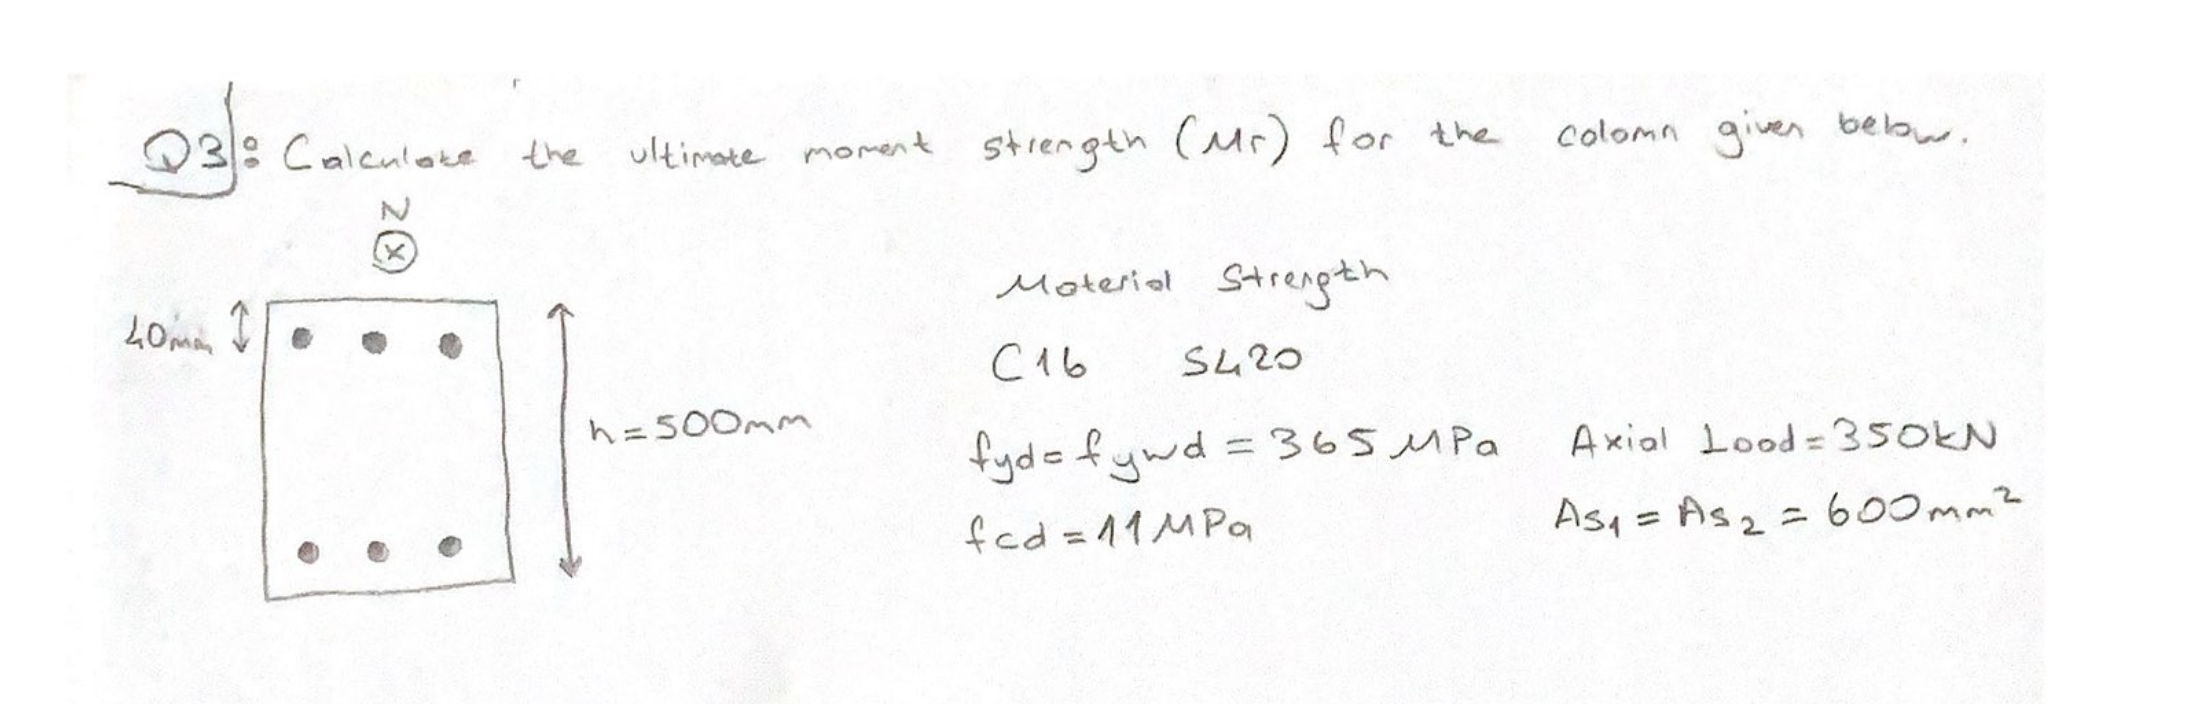 Q3: Calculate the ultimate moment strength (Mr) for the colomn given below.
N
40mm
h=500mm
Material Strength
C16 S420
fyd=fywd=365MPa Axial Load=350kN
fcd=11MPa As₁=As₂=600mm²